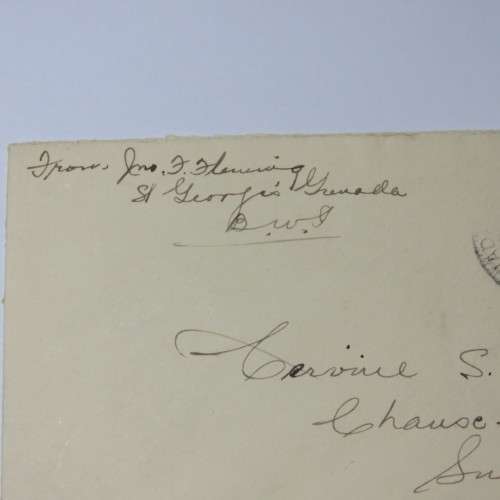 From. Jno. F. Fleming
St George's Grenada
B.W.I
Cervine S.
Chause-
Su